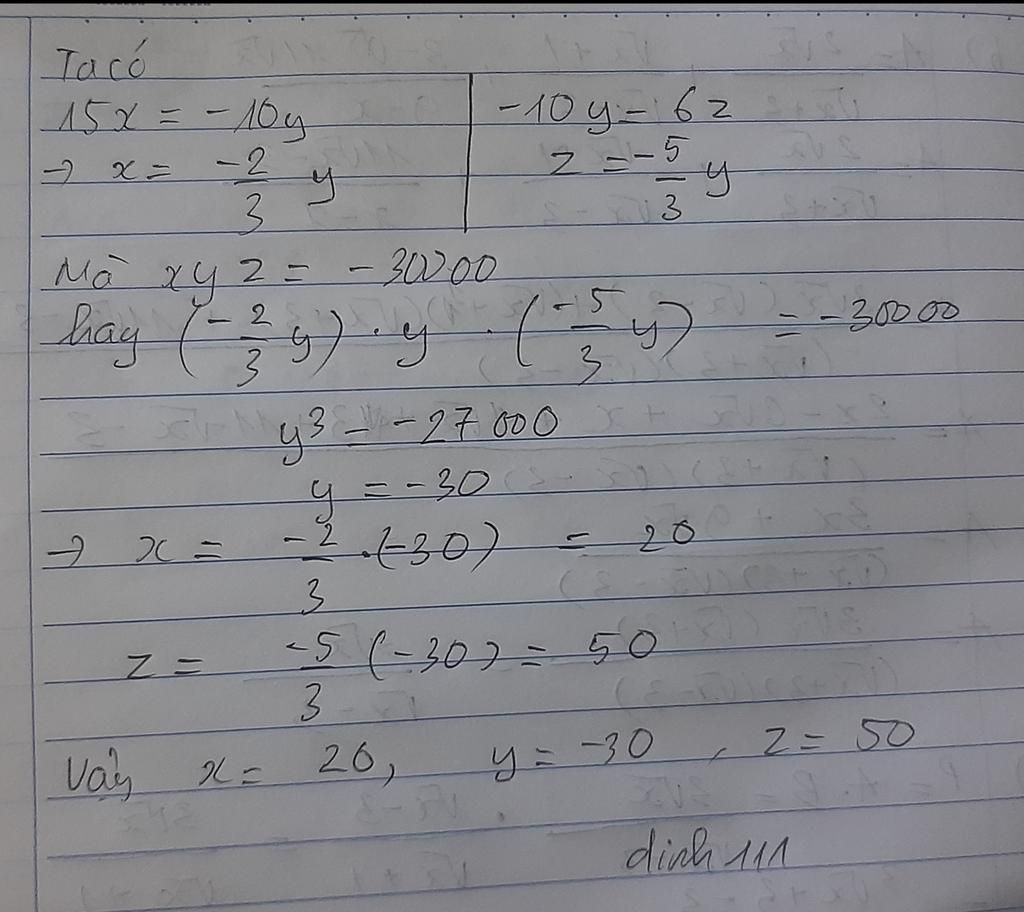 Ta có
15x = -10y
→ x = -2/3 y
-10y = 6z
z = -5/3 y
Mà xyz = -30000
hay (-2/3 y) . y . (-5/3 y) = -30000
y³ = -27000
y = -30
→ x = -2/3 . (-30) = 20
z = -5/3 (-30) = 50
Vậy x = 20, y = -30, z = 50
dinh 111